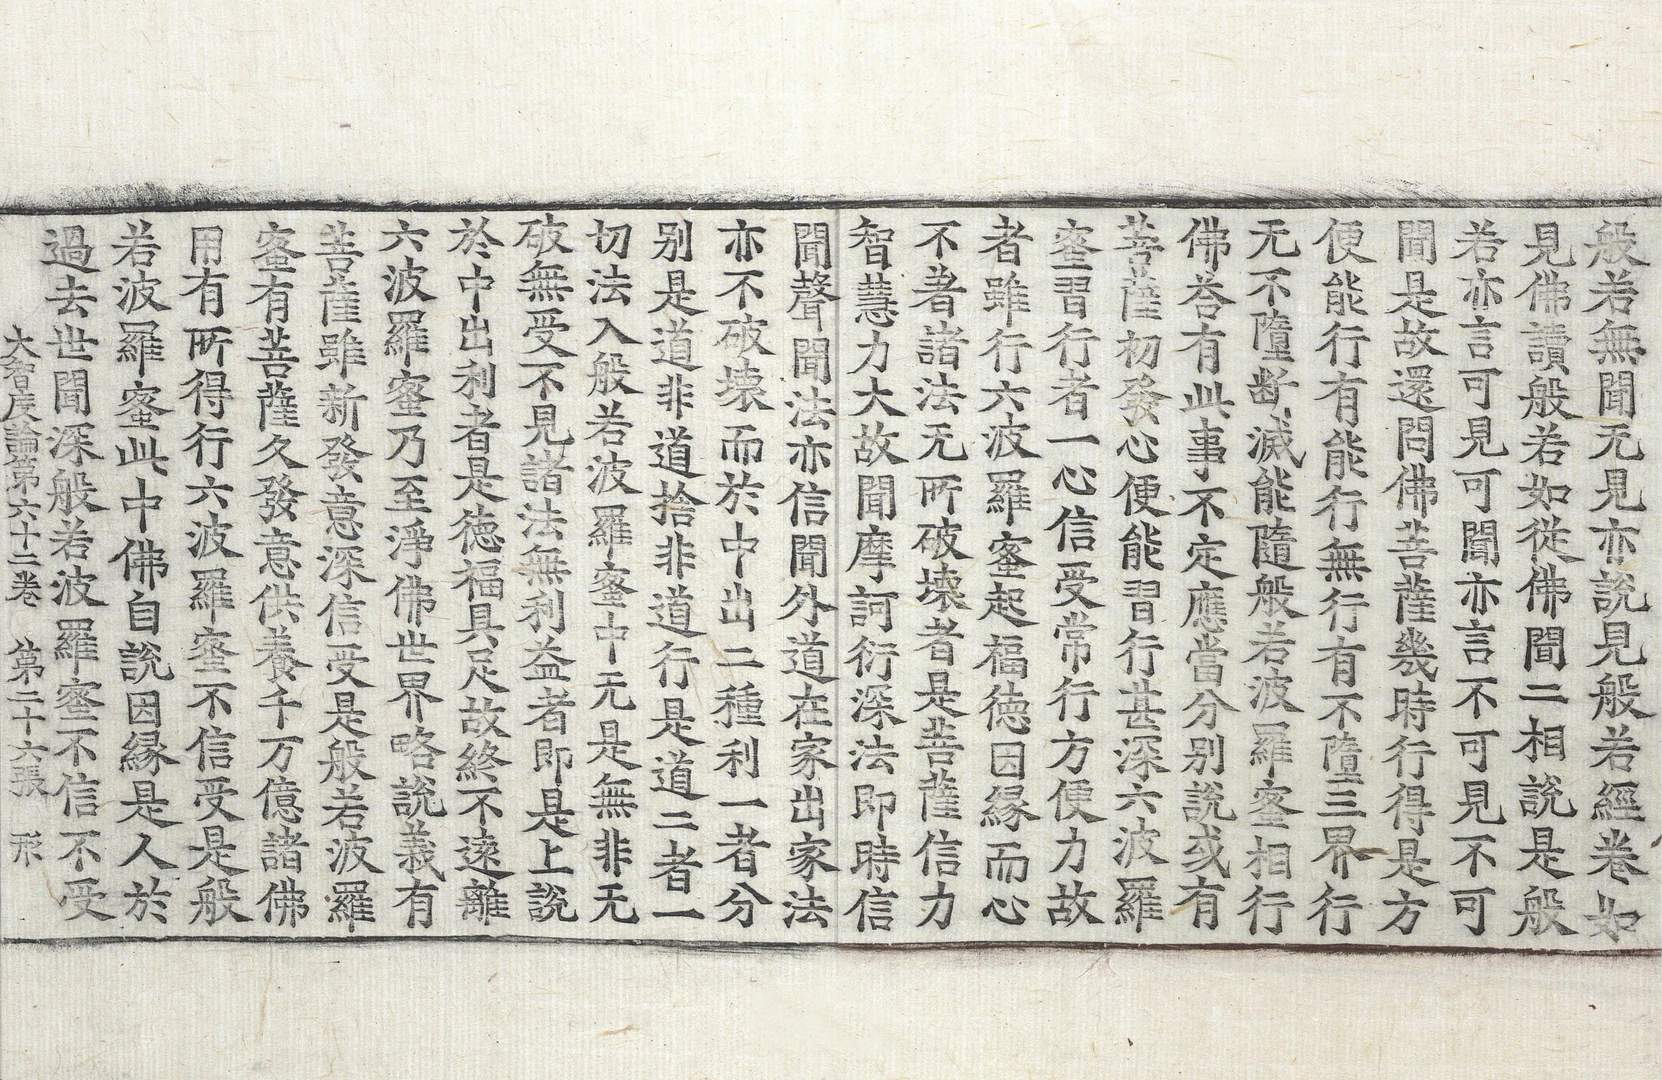 般若無聞无見亦說見般若經卷如
見佛讀般若如從佛聞二相說是般
若亦言可見可聞亦言不可見不可
聞是故還問佛菩薩幾時行得是方
便能行有能行無行有不墮三界行
无不墮斷滅能隨般若波羅蜜相行
佛荅有此事不定應當分别說或有
菩薩初發心便能習行甚深六波羅
蜜習行者一心信受常行方便力故
者雖行六波羅蜜起福德因縁而心
不著諸法无所破壊者是菩薩信力
智慧力大故聞摩訶衍深法即時信
聞聲聞法亦信聞外道在家出家法
亦不破壊而於中出二種利一者分
别是道非道捨非道行是道二者一
切法入般若波羅蜜中无是無非无
破無受不見諸法無利益者即是上說
於中出利者是徳福具足故終不遠離
六波羅蜜乃至淨佛世界略說義有
菩薩雖新發意深信受是般若波羅
蜜有菩薩久發意供養千万億諸佛
用有所得行六波羅蜜不信受是般
若波羅蜜此中佛自說因縁是人於
過去世聞深般若波羅蜜不信不受
大智度論第六十二卷 第二十六張 形